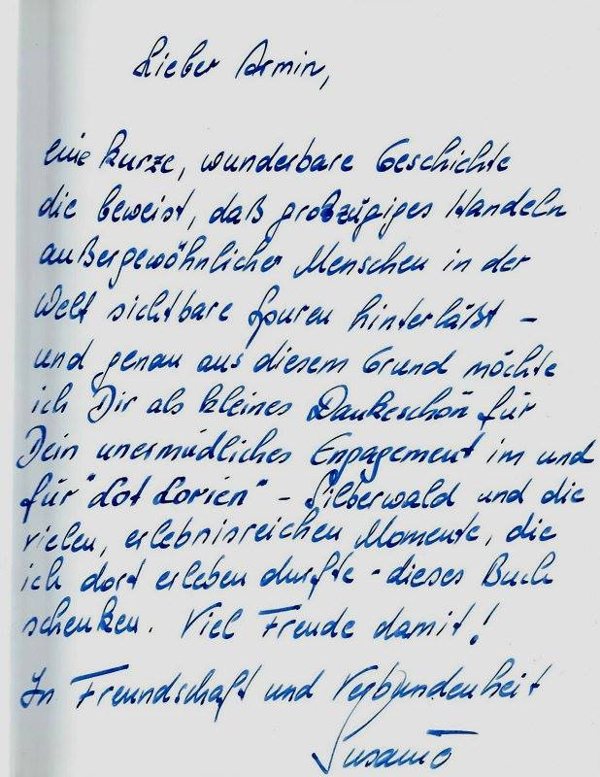 Lieber Armin,
eine kurze, wunderbare Geschichte
die beweist, daß großzügiges Handeln
außergewöhnlicher Menschen in der
Welt sichtbare Spuren hinterläßt –
und genau aus diesem Grund möchte
ich Dir als kleines Dankeschön für
Dein unermüdliches Engagement im und
für "Lot Lorien" – Silberwald und die
vielen, erlebnisreichen Momente, die
ich dort erleben durfte – dieses Buch
schenken. Viel Freude damit!
In Freundschaft und Verbundenheit